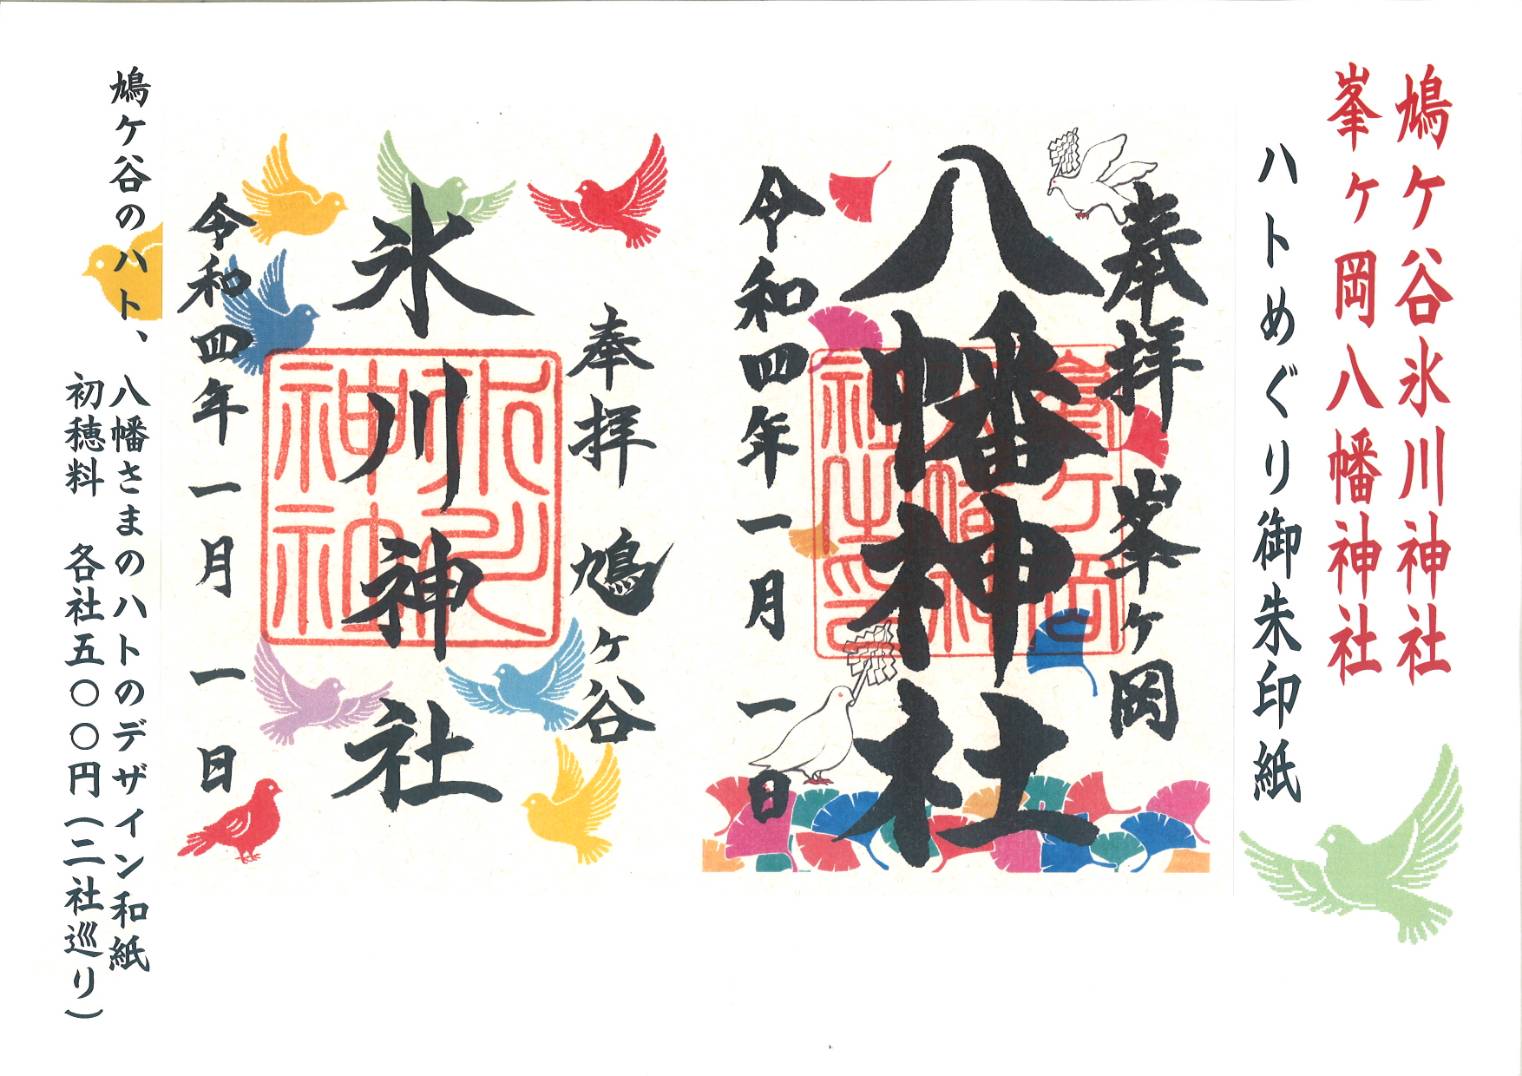 鳩ケ谷氷川神社
峯ヶ岡八幡神社
ハトめぐり御朱印紙
奉拝 峯ヶ岡
八幡神社
令和四年一月一日
奉拝 鳩ヶ谷
氷川神社
令和四年一月一日
鳩ケ谷のハト、八幡さまのハトのデザイン和紙
初穂料 各社五〇〇円(二社巡り)
氷川
神社